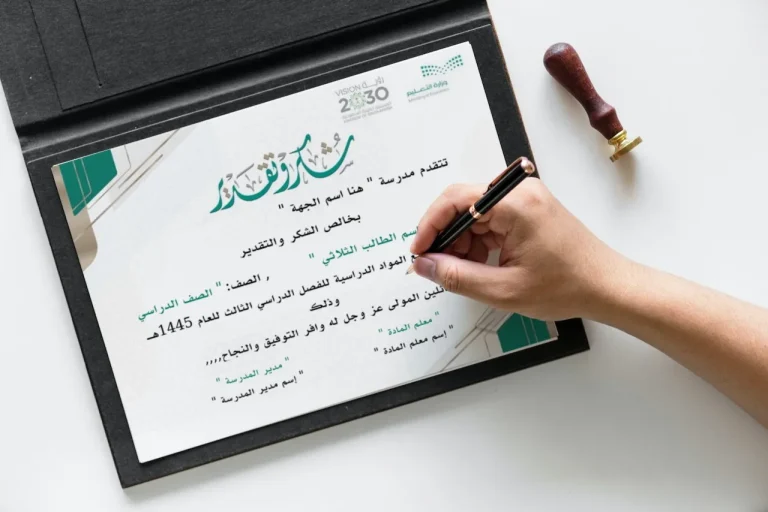 VISION رؤيــة
2030
وزارة التعليم
Ministry of Education
شكر وتقدير
تتقدم مدرسة " هنا اسم الجهة "
بخالص الشكر والتقدير
سم الطالب الثلاثي "
, الصف: " الصف الدراسي
المواد الدراسية للفصل الدراسي الثالث للعام 1445هـ
وذلك
المولى عز وجل له وافر التوفيق والنجاح,,,,
" معلم المادة "
"إسم معلم المادة "
" مدير المدرسة "
"إسم مدير المدرسة "